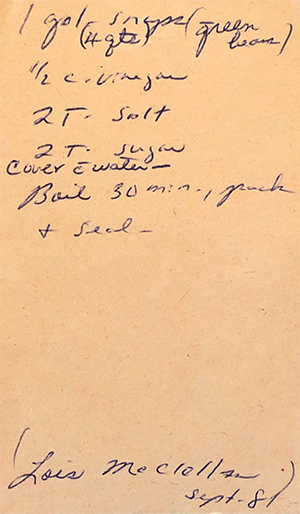 1 gal. snaps (green beans)
(4 qts)
1/2 c. vinegar
2 T. salt
2 T. sugar
Cover c̄ water—
Boil 30 min., pack
+ seal—
(Lois McClellan)
Sept. 81